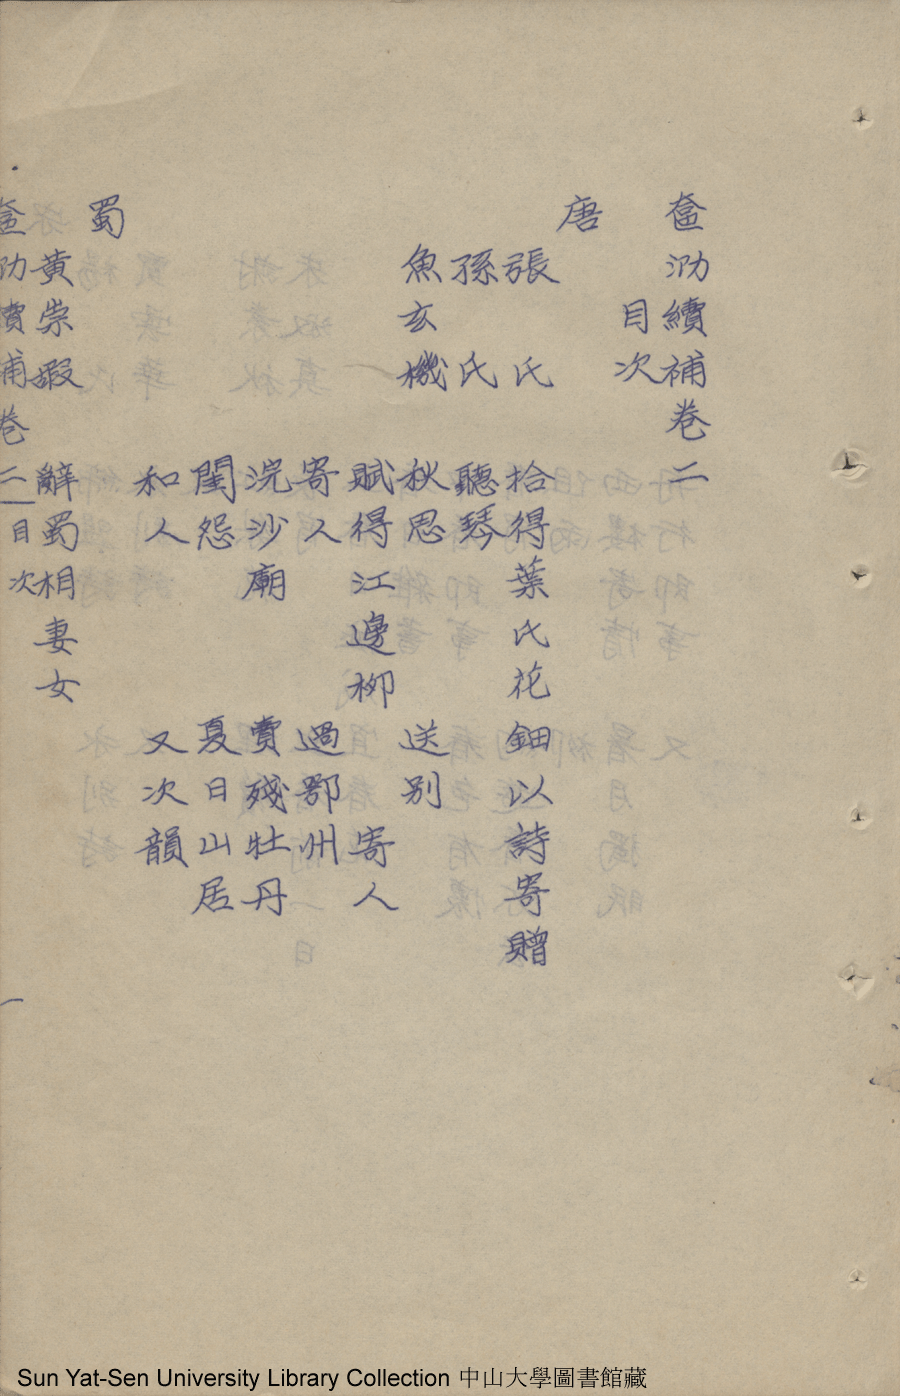 奩泐續補卷二
目次
唐
張氏 拾得葉氏花鈿以詩寄贈
孫氏 聽琴
魚玄機 秋思 送別
賦得江邊柳 寄人
寄人 過鄂州
浣沙廟 賣殘牡丹
閨怨 夏日山居
和人 又次韻
蜀
黃崇嘏 辭蜀相妻女
奩泐續補卷二 目次 一
Sun Yat-Sen University Library Collection 中山大學圖書館藏